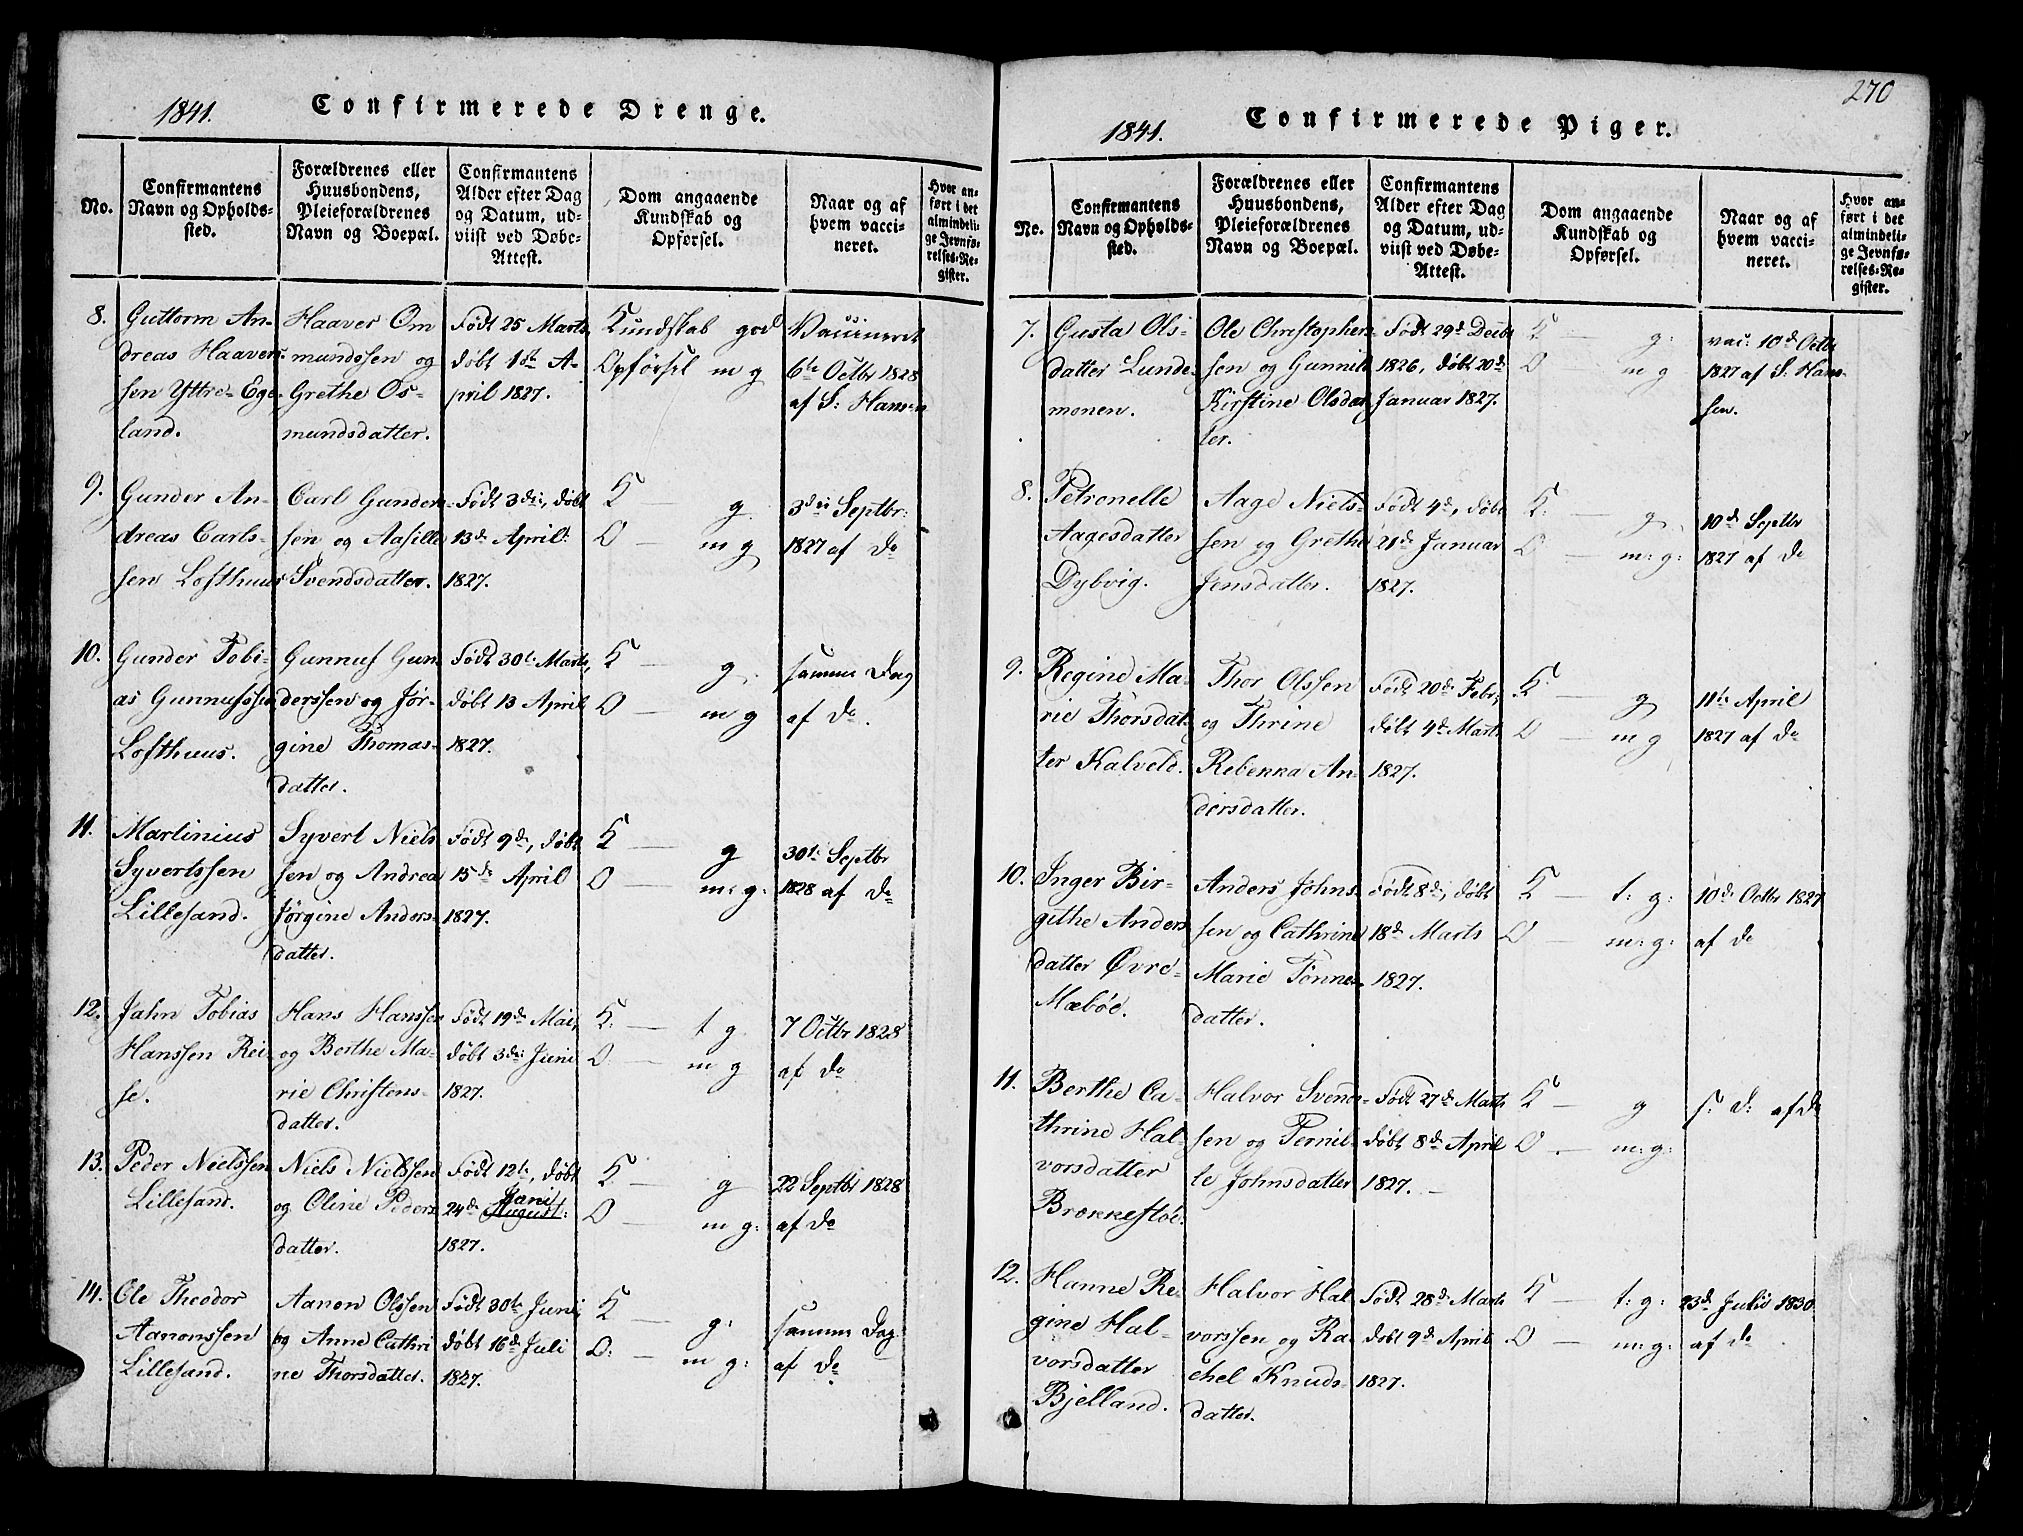 1841.
Confirmerede Drenge.
No.
Confirmantens
Navn og Opholds-
sted.
Forældrenes eller
Huusbondens,
Pleieforældrenes
Navn og Boepæl.
Confirmantens
Alder efter Dag
og Datum, ud-
viist ved Døbe-
Attest.
Dom angaaende
Kundskab og
Opførsel.
Naar og af
hvem vacci-
neret.
Hvor an-
ført i det
almindeli-
ge Jevnfø-
relses-Re-
gister.
8.
Guttorm An-
dreas Haavers-
sen Yttre-Ege-
land.
Haaver Om
mundssen og
Grethe Os-
mundsdatter.
Født 25 Marts
døbt 1ste A-
pril 1827.
Kundskab god
Opførsel m g
Vaccineret
6te Octbr 1828
af S: Hansen
9.
Gunder An-
dreas Carls-
sen Lofthuus
Carl Gunder-
sen og Aasille
Svendsdatter.
Født 3die, døbt
13de April
1827.
K — g.
O — m g
3die Septbr:
1827 af do
10.
Gunder Tobi-
as Gunnufssen
Lofthuus.
Gunnuf Gun
derssen og Jør-
gine Thomas-
datter.
Født 30te Marts,
døbt 13 April
1827.
K — g.
O — m g
samme Dag
af do.
11.
Martinius
Syvertssen
Lillesand.
Syvert Niels
sen og Andrea
Jørgine Anders-
datter.
Født 9de, døbt
15de April
1827.
K — g
O — m: g:
30te Septbr
1828 af do
12.
Jahn Tobias
Hanssen Rei-
se.
Hans Hanssen
og Berthe Ma-
rie Christens-
datter.
Født 19de Mai,
døbt 3die Juni
1827.
K: — t g.
O — m g
7 Octbr 1828
af do
13.
Peder Nielssen
Lillesand.
Niels Nielssen
og Oline Peders
datter.
Født 12te, døbt
Juni
24de August:
1827.
K — g
O — m g:
22 Septbr 1828
af do
14.
Ole Theodor
Aanonssen
Lillesand.
Aanon Olssen
og Anne Cathri
ne Thorsdatter.
Født 30te Juni
døbt 16de Juli
1827.
K — g:
O: — m g:
samme Dag
af do.
270
1841.
Confirmerede Piger.
No.
Confirmantens
Navn og Opholds-
sted.
Forældrenes eller
Huusbondens,
Pleieforældrenes
Navn og Boepæl.
Confirmantens
Alder efter Dag
og Datum, ud-
viist ved Døbe-
Attest.
Dom angaaende
Kundskab og
Opførsel.
Naar og af
hvem vacci-
neret.
Hvor an-
ført i det
almindeli-
ge Jevnfø-
relses-Re-
gister.
7.
Gusta Ols-
datter Lunde-
monen.
Ole Christopher-
sen og Gunnild
Kirstine Olsdat
ter.
Født 29de Decbr
1826, døbt 20de
Januar 1827.
K — g:
O — m g
vac: 10de Octbr
1827 af S: Hans-
sen.
8.
Petronelle
Aagesdatter
Dybvig.
Aage Niels-
sen og Grethe
Jensdatter.
Født 4de, døbt
21de Januar
1827.
K: — g
O — m: g:
10de Septbr
1827 af do
9.
Regine Ma-
rie Thorsdat-
ter Kalveld.
Thor Olssen
og Thrine
Rebekka An-
dersdatter.
Født 20de Febr:
døbt 4de Marts
1827.
K — g
O — m g
11te April
1827 af do
10.
Inger Bir-
githe Anders
datter Øvre-
Mæbøe.
Anders Johns-
sen og Cathrine
Marie Tønnes-
datter.
Født 8de, døbt
18de Marts
1827.
K — t: g:
O — m: g:
10de Octbr 1827
af do
11.
Berthe Ca-
thrine Hal-
vorsdatter
Brækkestøe.
Halvor Svends-
sen og Pernil-
le Johnsdatter
Født 27de Marts
døbt 8de April
1827. —
K — g
O. — m: g:
s: d: af do
12.
Hanne Re-
gine Hal-
vorsdatter
Bjelland.
Halvor Hal
vorssen og Ra-
chel Knuds-
datter.
Født 28de Marts
døbt 9de April
1827.
K — t: g:
O — m: g:
23de Julii 1830.
af do